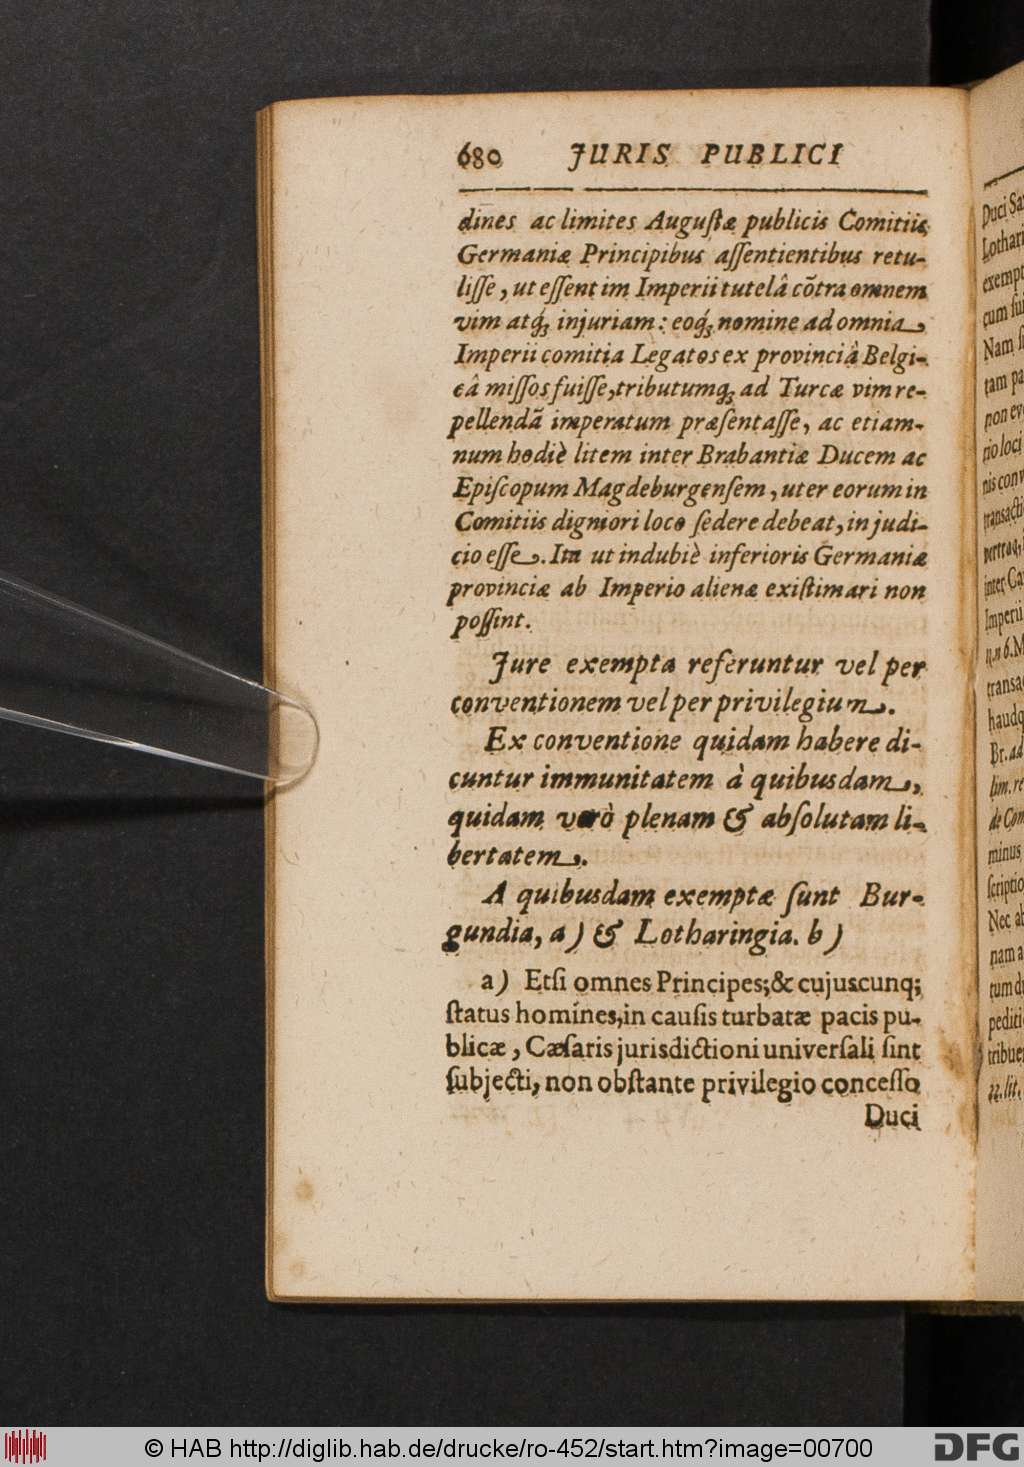 680 JURIS PUBLICI
dines ac limites Auguſtæ publicis Comitiis,
Germaniæ Principibus aſſentientibus retu-
liſſe, ut eſſent im Imperii tutelâ cõtra omnem
vim atq́ꝫ injuriam: eoq́ꝫ nomine ad omnia
Imperii comitia Legatos ex provinciâ Belgi-
câ miſſos fuiſſe, tributumq́ꝫ ad Turcæ vim re-
pellendã imperatum præſentaſſe, ac etiam-
num hodiè litem inter Brabantiæ Ducem ac
Epiſcopum Magdeburgenſem, uter eorum in
Comitiis digniori loco ſedere debeat, in judi-
cio eſſe. Ita ut indubiè inferioris Germaniæ
provinciæ ab Imperio alienæ exiſtimari non
poſſint.
Jure exempta referuntur vel per
conventionem vel per privilegium.
Ex conventione quidam habere di-
cuntur immunitatem à quibusdam,
quidam verò plenam & abſolutam li-
bertatem.
A quibusdam exemptæ ſunt Bur-
gundia, a) & Lotharingia. b)
a) Etſi omnes Principes; & cujuscunq;
ſtatus homines, in cauſis turbatæ pacis pu-
blicæ, Cæſaris jurisdictioni univerſali ſint
ſubjecti, non obſtante privilegio conceſſo
Duci
Duci Sa
Lothari
exempt
cum ſui
Nam ſ
tam pa
non ev
rio loci
nis conv
transacti
inter Ca
Imperii
n. 6. M
transa
haudq
Br. ad
lim. re
de Con
minus
ſcriptio
Nec ab
nam a
tum d
pediti
tribue
22. lit.
© HAB http://diglib.hab.de/drucke/ro-452/start.htm?image=00700
DFG